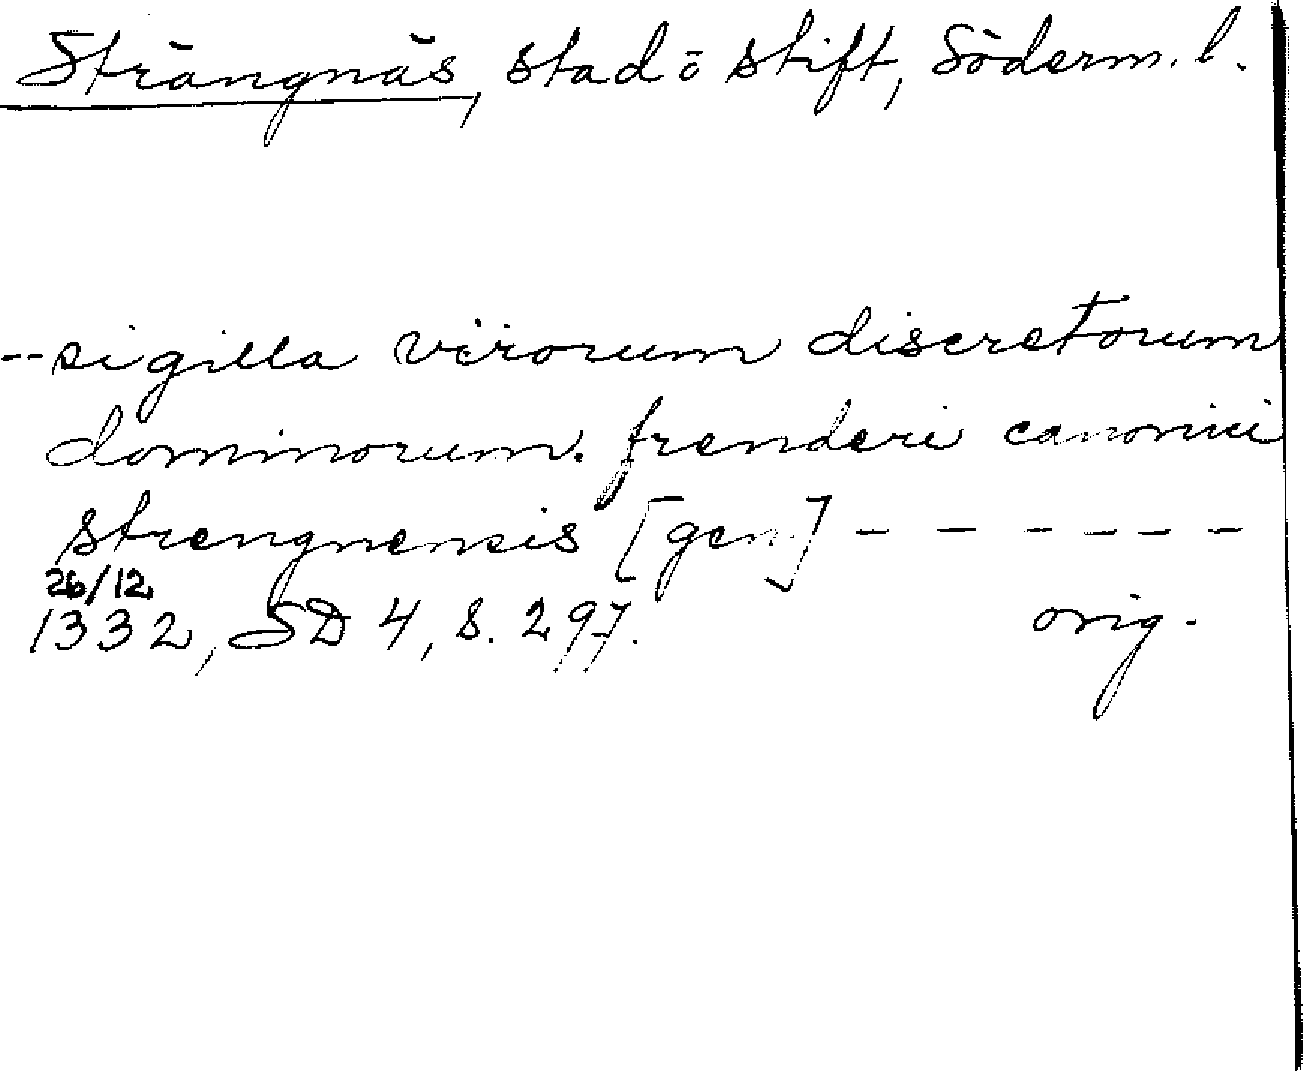 Strängnäs, stad o stift, Söderm. l.
-- sigilla virorum discretorum
dominorum. frenderi canonici
strengnensis [gen] - - - - - -
26/12
1332, SD 4, s. 297. orig.